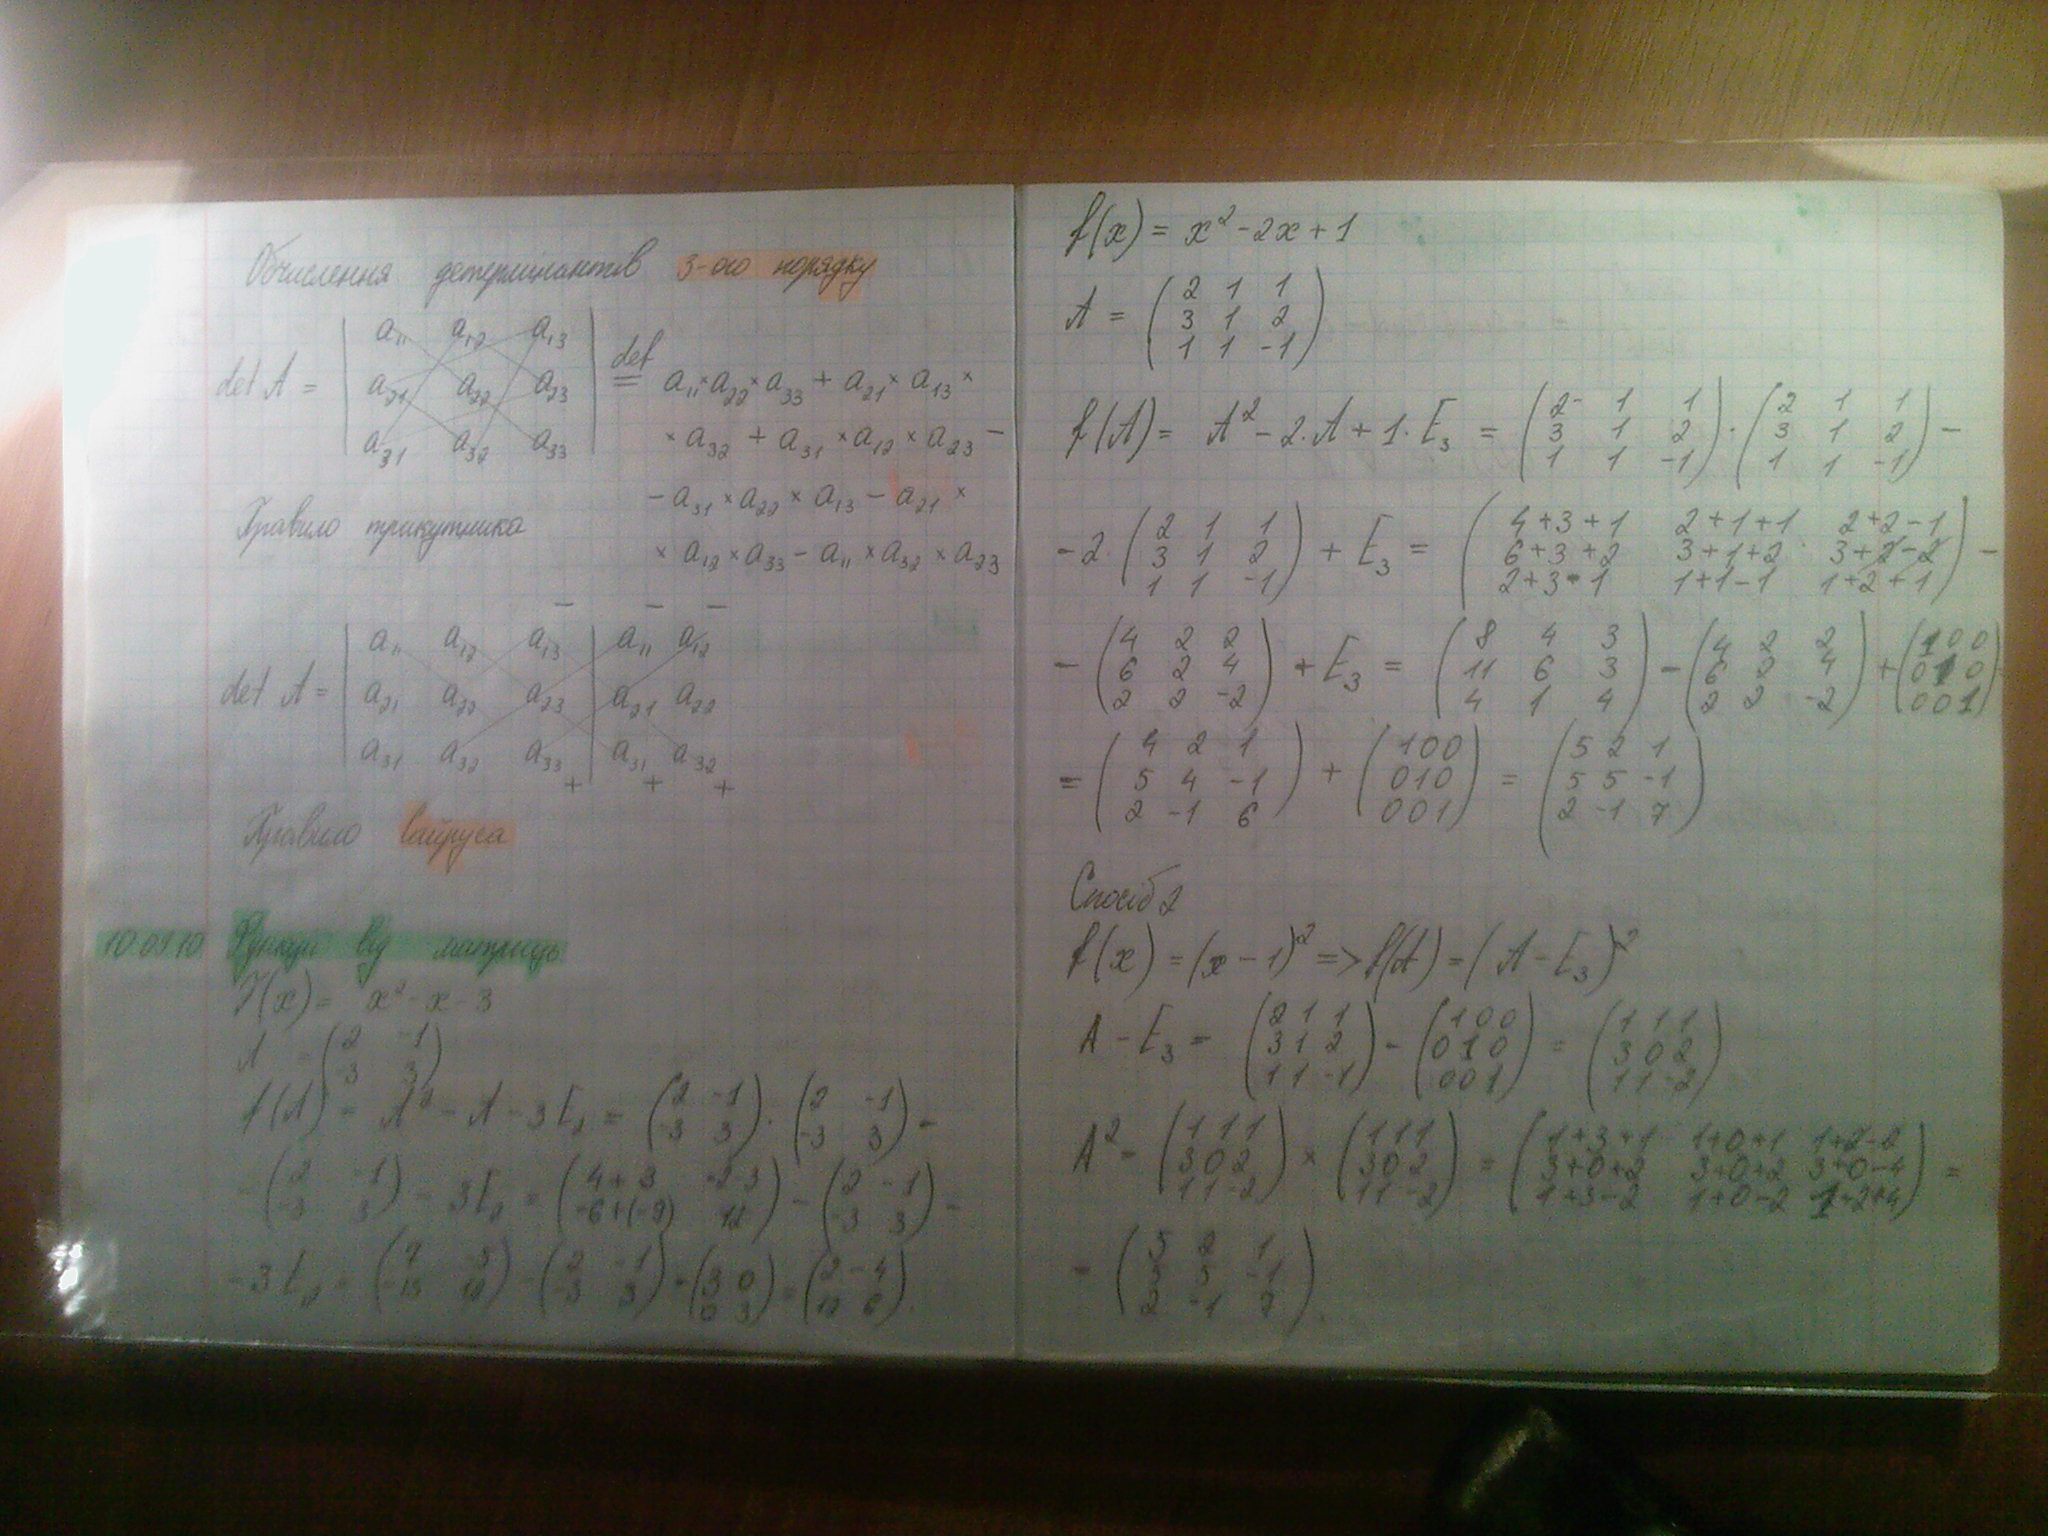 Обчислення детермінантів 3-ого порядку
det A = | a₁₁ a₁₂ a₁₃ |
| a₂₁ a₂₂ a₂₃ |
| a₃₁ a₃₂ a₃₃ |
def
= a₁₁×a₂₂×a₃₃ + a₂₁×a₁₃×
×a₃₂ + a₃₁×a₁₂×a₂₃ −
− a₃₁×a₂₂×a₁₃ − a₂₁×
×a₁₂×a₃₃ − a₁₁×a₃₂×a₂₃
Правило трикутника
− − −
det A = | a₁₁ a₁₂ a₁₃ | a₁₁ a₁₂
| a₂₁ a₂₂ a₂₃ | a₂₁ a₂₂
| a₃₁ a₃₂ a₃₃ | a₃₁ a₃₂
+ + +
Правило
10.09.10 Функції від матриць
f(x) = x² - x - 3
A = (2 -1
-3 3)
f(A) = A² - A - 3E₂ = (2 -1
-3 3) · (2 -1
-3 3) -
- (2 -1
-3 3) - 3E₂ = (4+3 -2-3
-6+(-9) 12) - (2 -1
-3 3) -
- 3E₂ = (7 -5
-15 12) - (2 -1
-3 3) - (3 0
0 3) = (2 -4
12 6).
f(x) = x² - 2x + 1
A = (2 1 1
3 1 2
1 1 -1)
f(A) = A² - 2·A + 1·E₃ = (2 1 1
3 1 2
1 1 -1) · (2 1 1
3 1 2
1 1 -1) -
- 2·(2 1 1
3 1 2
1 1 -1) + E₃ = (4+3+1 2+1+1 2+2-1
6+3+2 3+1+2 3+2-2
2+3-1 1+1-1 1+2+1) -
- (4 2 2
6 2 4
2 2 -2) + E₃ = (8 4 3
11 6 3
4 1 4) - (4 2 2
6 2 4
2 2 -2) + (1 0 0
0 1 0
0 0 1) =
= (4 2 1
5 4 -1
2 -1 6) + (1 0 0
0 1 0
0 0 1) = (5 2 1
5 5 -1
2 -1 7)
Спосіб 2
f(x) = (x - 1)² => f(A) = (A - E₃)²
A - E₃ = (2 1 1
3 1 2
1 1 -1) - (1 0 0
0 1 0
0 0 1) = (1 1 1
3 0 2
1 1 -2)
A² = (1 1 1
3 0 2
1 1 -2) × (1 1 1
3 0 2
1 1 -2) = (1+3+1 1+0+1 1+2-2
3+0+2 3+0+2 3+0-4
1+3-2 1+0-2 1+2+4) =
= (5 2 1
5 5 -1
2 -1 7).